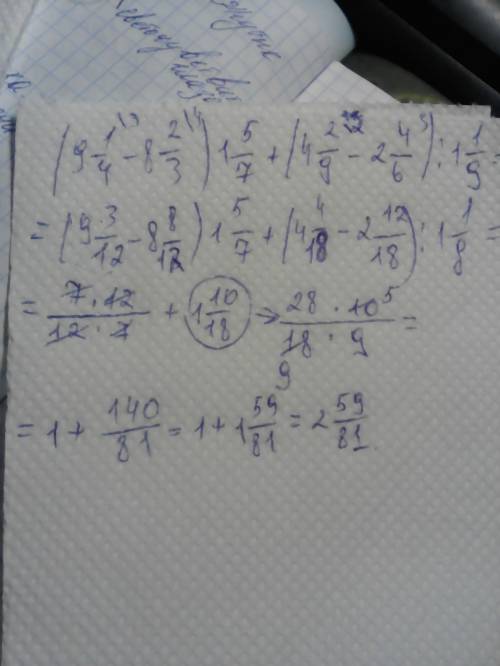 (9 1/4 \3 − 8 2/3 \4) 1 5/7 + (4 2/9 \2 − 2 4/6 \3) : 1 1/9 =
= (9 3/12 − 8 8/12) 1 5/7 + (4 4/18 − 2 12/18) : 1 1/8 =
= 7 · 12 / 12 · 7 + 1 10/18 → 28 · 10 5 / 18 · 9 =
9
= 1 + 140/81 = 1 + 1 59/81 = 2 59/81